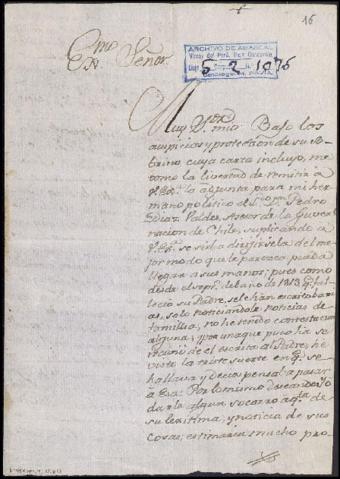 16
Exmo Señor
ARCHIVO DE ABASCAL
Virrey del Perú,
5-2 1076
Muy Sr. mio: Bajo los
auspicios y proteccion de su so-
brino cuya carta incluyo, me
tomo la libertad de remitir a
V.Exa. la adjunta para mi her
mano politico el Sor. Dn. Pedro
Diaz Valdes, Asesor de la Gover
nacion de Chile, suplicando a
V.Exa. se sirva dirijirsela del me-
jor modo que le paresca, pueda
llegar a sus manos; pues como
desde el de el año de 1813 q. fa-
llecio su Padre, se le han escrito bas
solo noticiandole noticias de
familia, no he tenido contexta cion
alguna; y por una que puco ha se
de el escrita al Padre, he
visto la triste suerte en q. se
hallava, y decia pensaba pasar
a Por lo mismo deseando yo
darle algun socorro a qta. de
su lexitima, y noticia de sus
cosas, estimaria mucho pro-